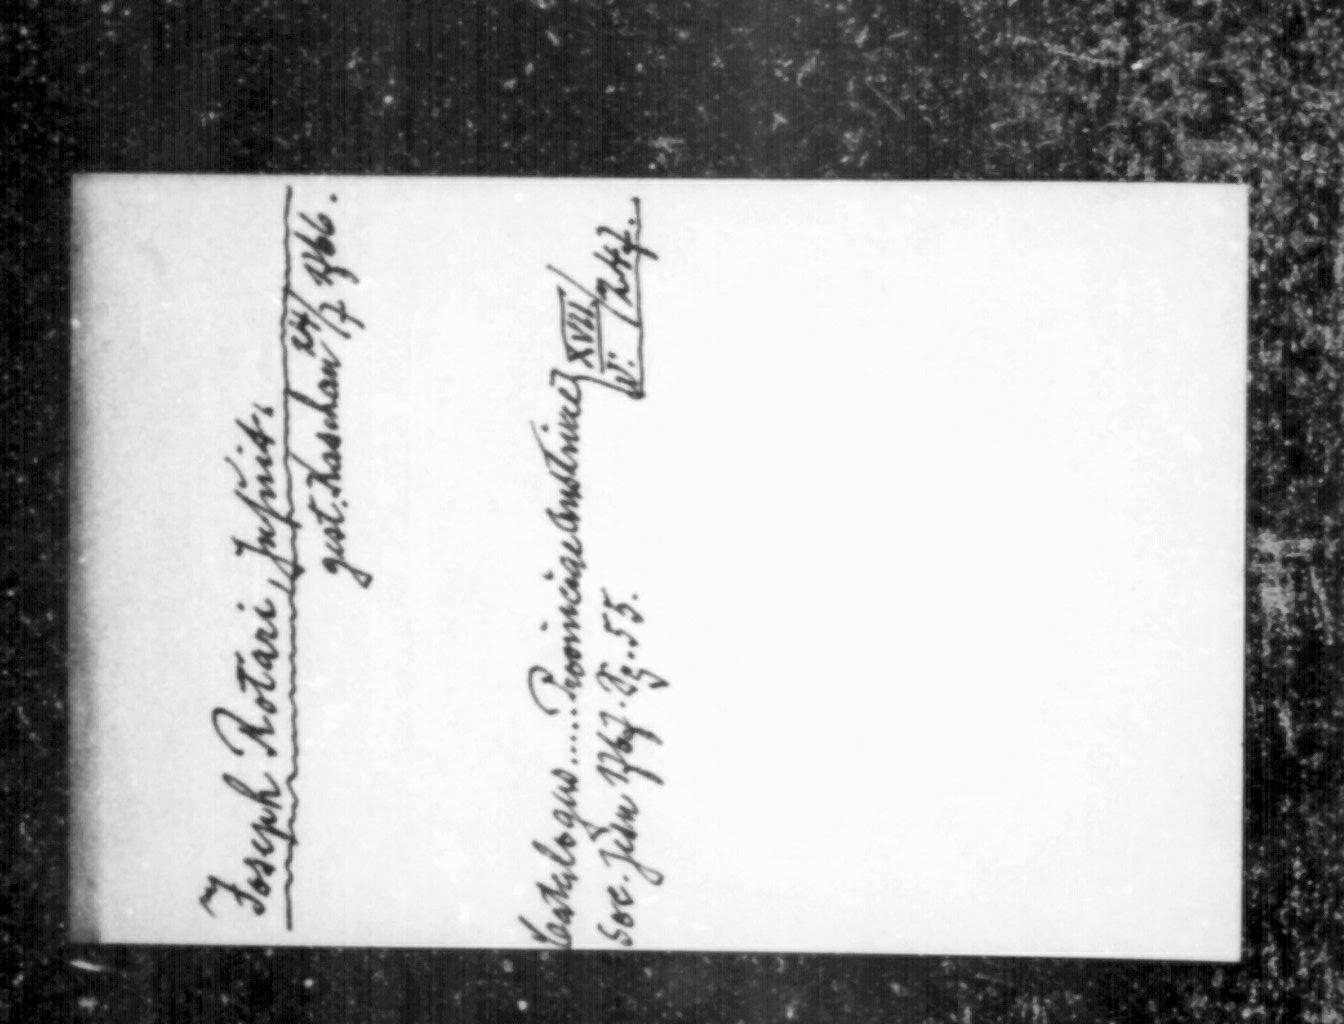 Joseph Rotari, Jesuit.
gest. Kaschau 24/7 1766.
Catalogus..... Provinciae Austriae
Soc. Jesu 1767. Pg. 55.
XVIII/
W. 247.